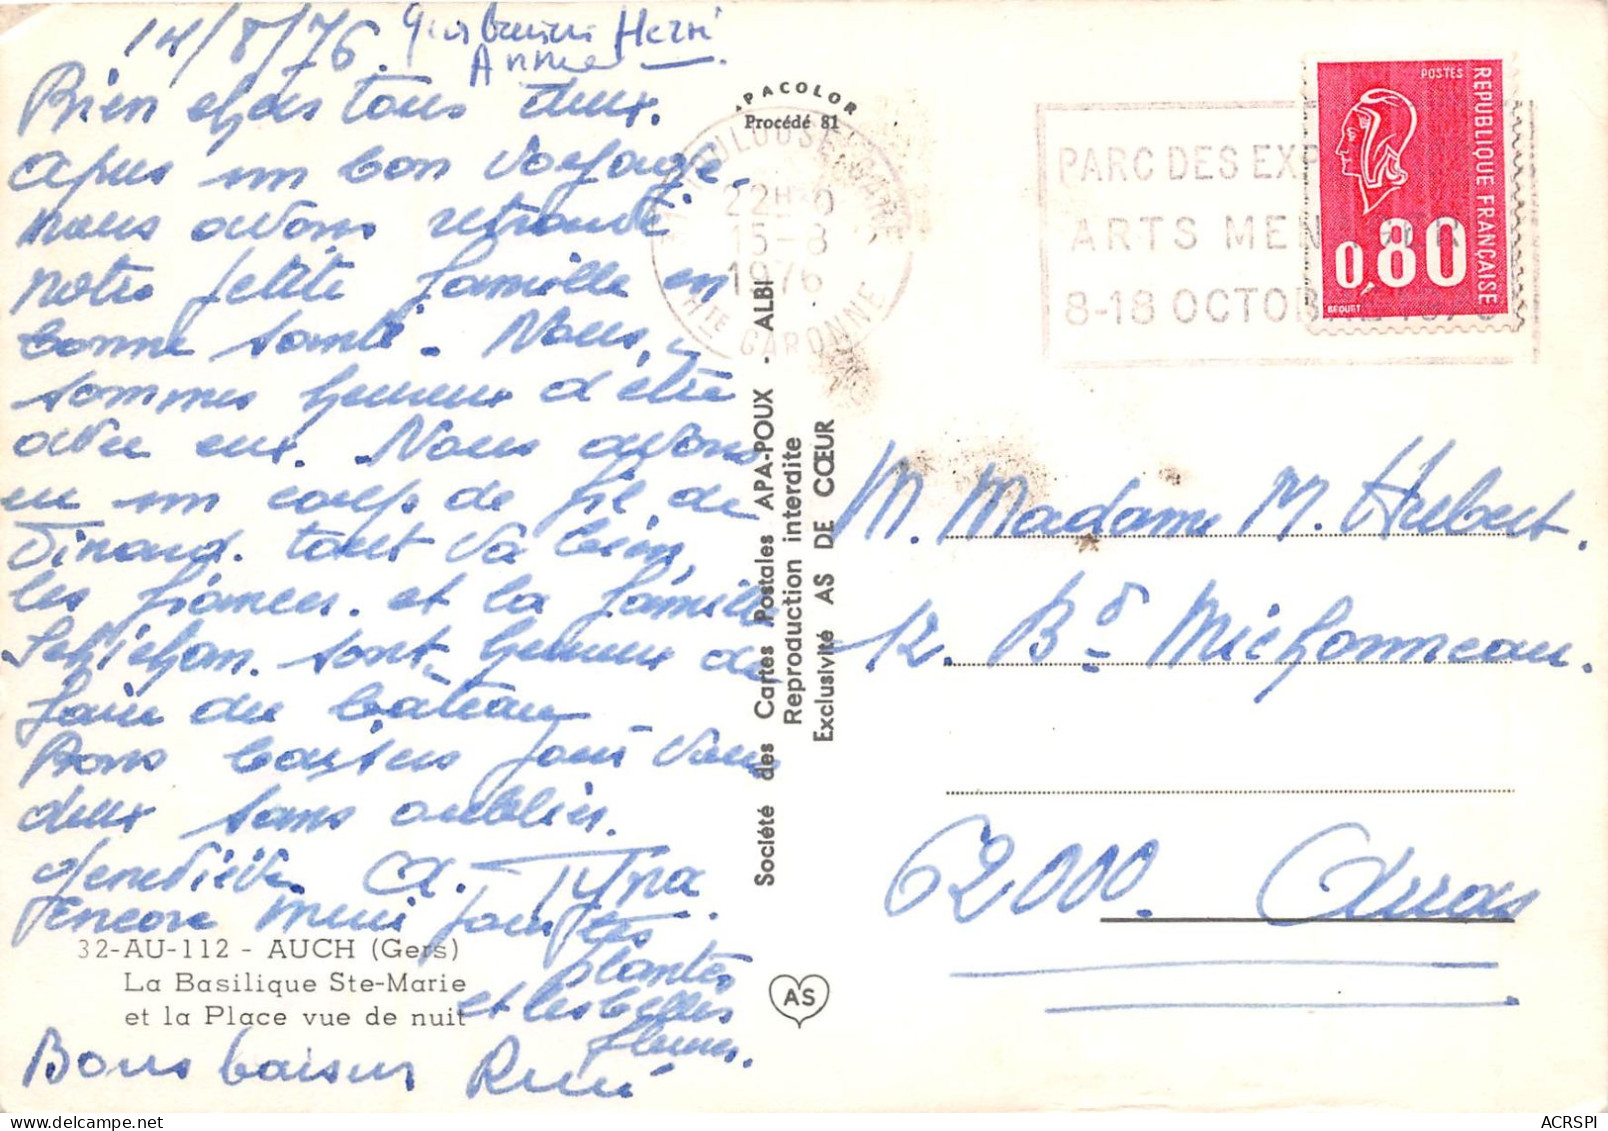 14/8/76. Hervé
Anne
Bien chers tous deux.
après un bon voyage
nous avons retrouvé
notre petite famille en
bonne santé. Nous
sommes heureux d'être
avec eux. Nous avons
eu un coup de fil de
Dinard. tout va bien,
les fiancés. et la famille
sont heureux de
faire du bâteau
Bons baisers pour vous
deux sans oublier.
Geneviève et
encore merci pour les
plantes
et les belles
fleurs.
Bons baisers René
32-AU-112 - AUCH (Gers)
La Basilique Ste-Marie
et la Place vue de nuit
APACOLOR
Procédé 81
Société des Cartes Postales APA-POUX - ALBI
Reproduction interdite
Exclusivité AS DE CŒUR
AS
TOULOUSE GARE
22H-0
15-8
1976
HTE GARONNE
PARC DES EXP
ARTS MEN
8-18 OCTOB
POSTES
REPUBLIQUE FRANÇAISE
0,80
BEQUET
M. Madame M. Hubert.
12. Bd Michonneau.
62000. Arras
ACRSPI